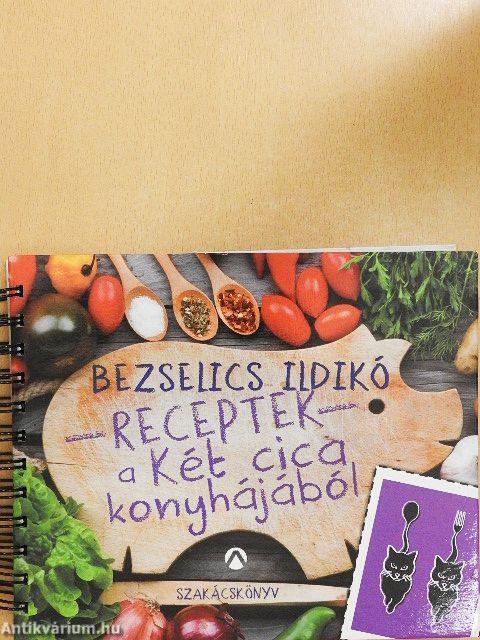 BEZSELICS ILDIKÓ
—RECEPTEK—
a Két cica
konyhájából
SZAKÁCSKÖNYV
Antikvárium.hu